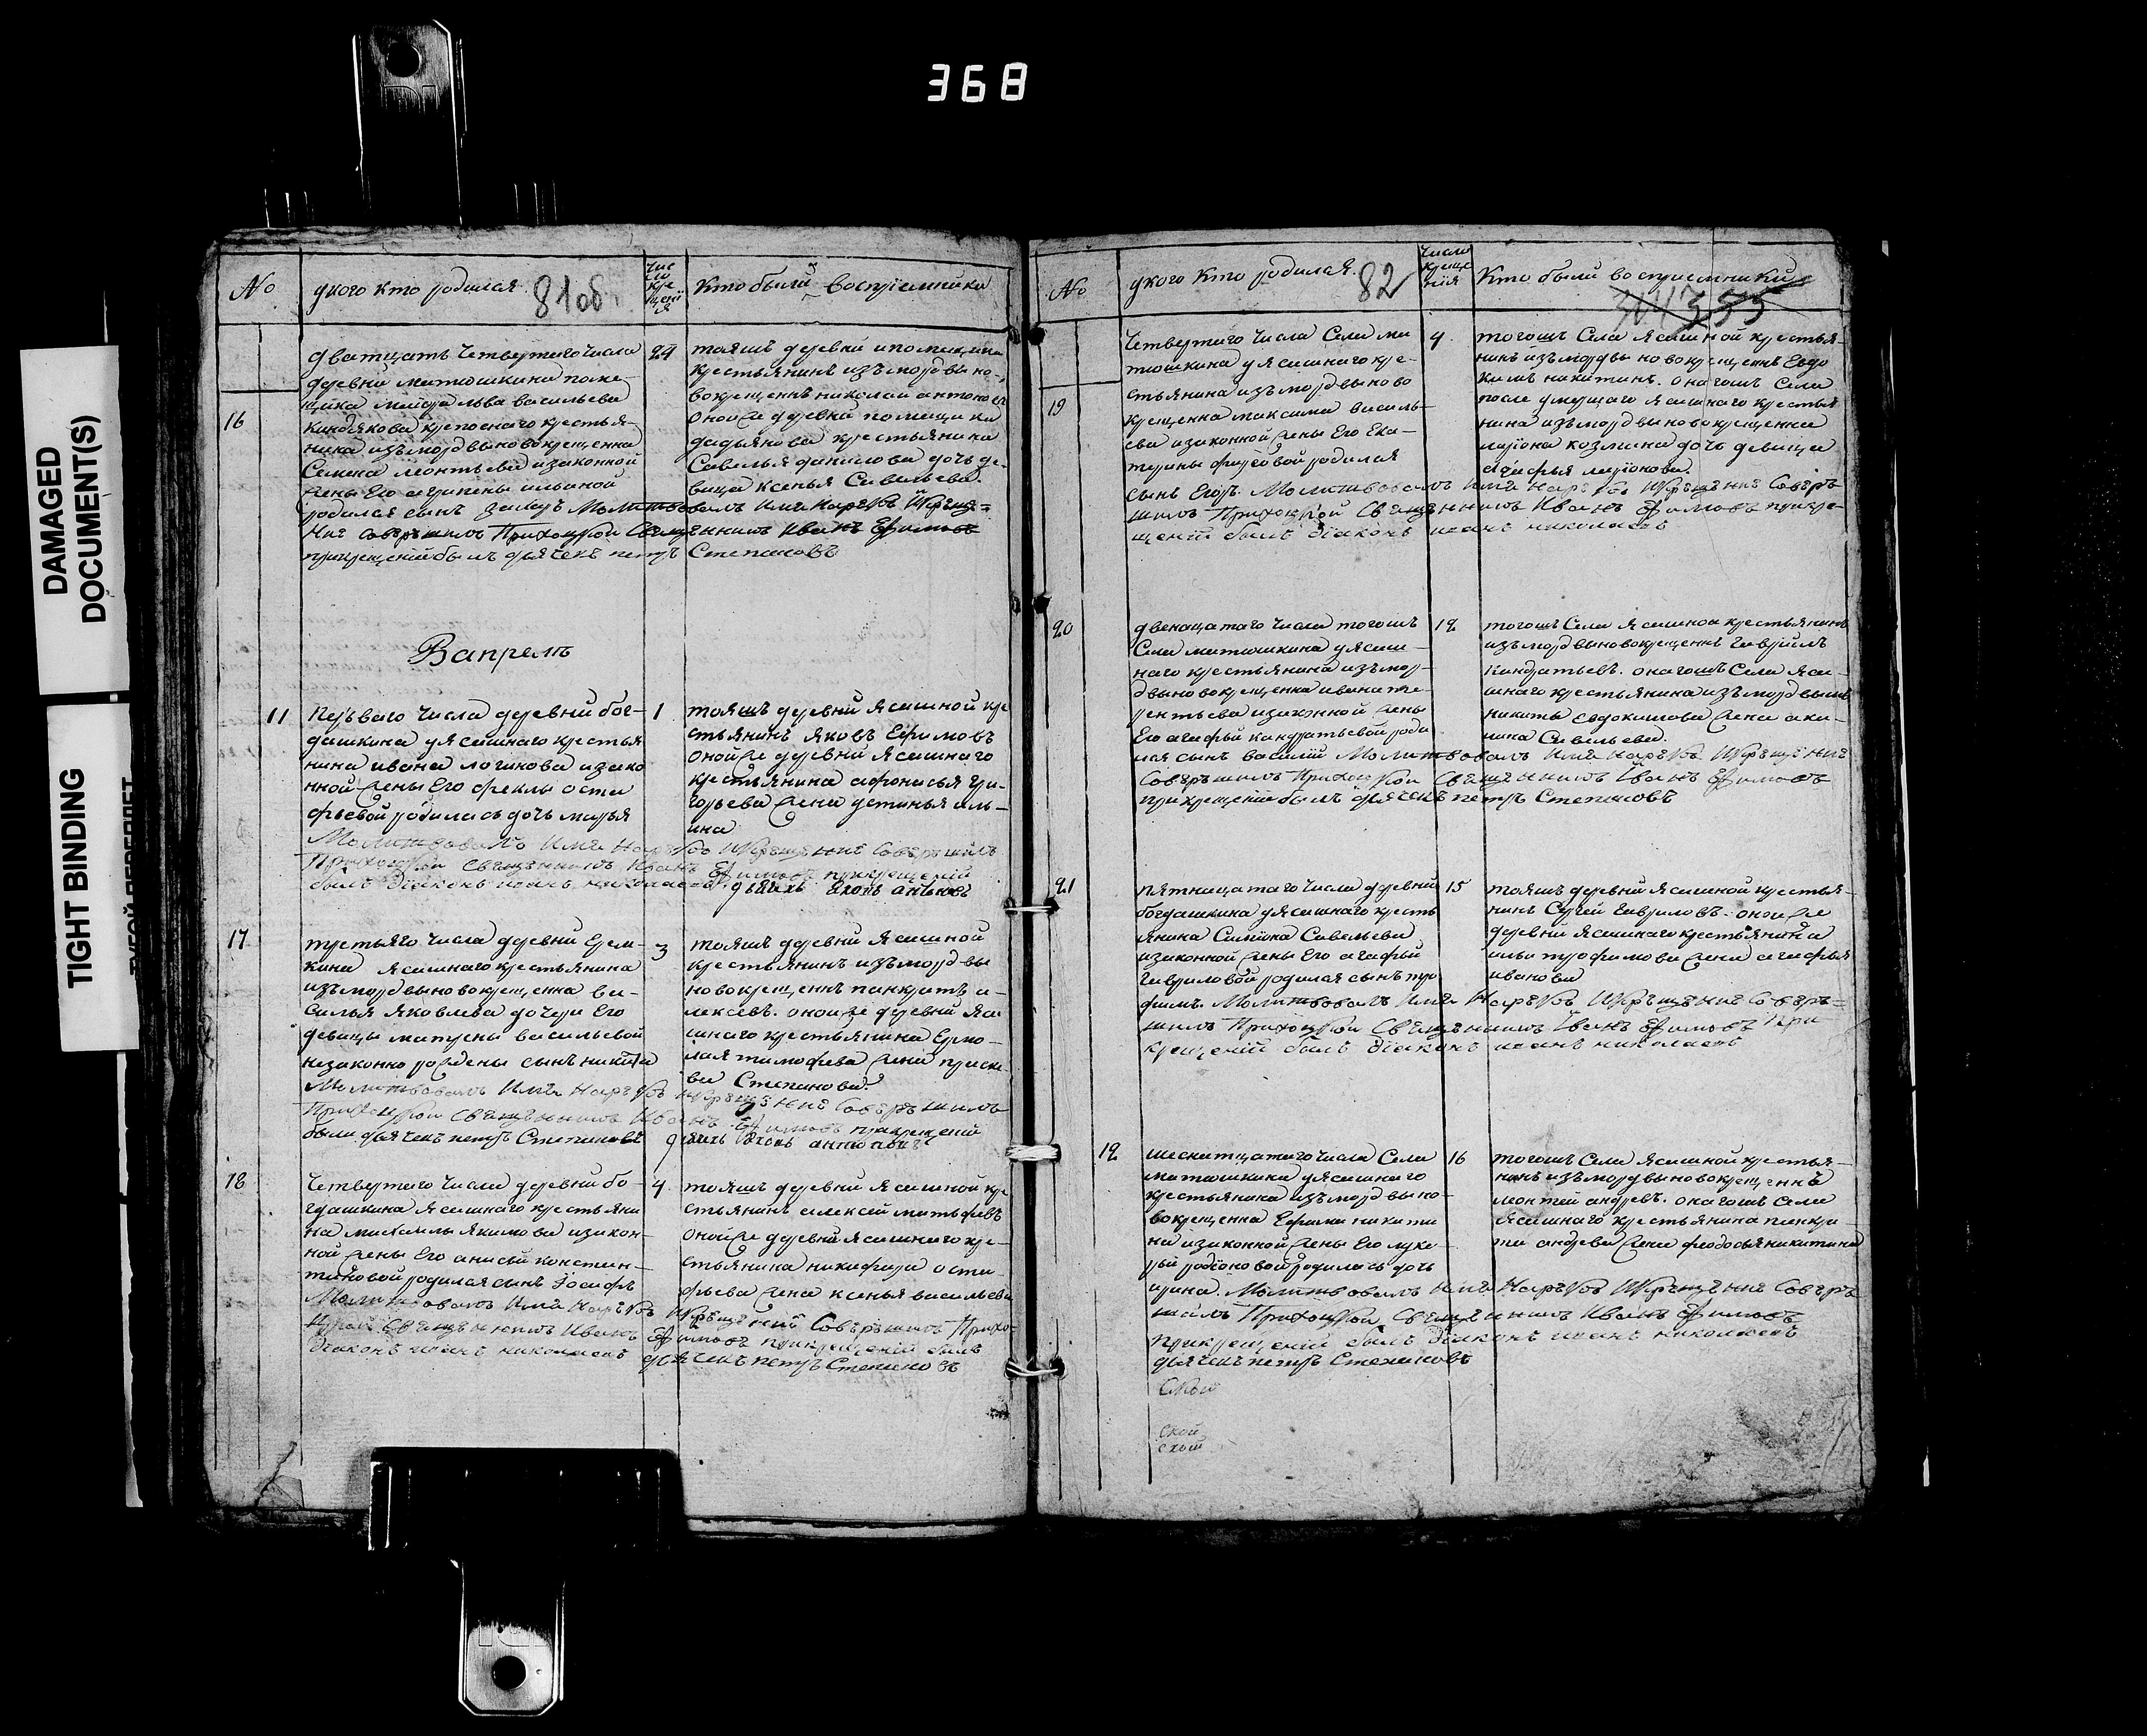 368
DAMAGED
DOCUMENT(S)
TIGHT BINDING
ТУГОЙ ПЕРЕПЛЕТ
№
укого кто родился
81об
число крещения
Кто были восприемники
16
дватцать четвертого числа
деревни матюшкина поме-
щика маиора льва васильева
киндякова крепоснаго крестья-
нина изъмордвыновокрещенна
Семена леонтьева изаконной
жены Его агрипены ильиной
родился сынъ
Молитвовалъ Имя Нарѣкъ Икрѣще-
ние Совершилъ Приходкой Священникъ Иванъ Ефимовъ
прикрещении былъ дьячекъ петръ Степановъ
24
тояжъ деревни помещика
крестьянинъ изъмордвы но-
вокрещеннъ николай антоновъ
Оной же деревни помещика
дадьянова крестьянина
Савелья данилова дочь де-
вица ксенья Савельева.
Вапреле
11
перьваго числа деревни бог-
дашкина уясашнаго крестья
нина ивана логинова изако
нной жены Его феклы оста
фьевой родилась дочь марья
Молитвовалъ Имя Нарѣкъ Икрѣщение Совершилъ
Приходкой Священникъ Иванъ Ефимовъ прикрещении
былъ діаконъ иоанъ николаевъ
1
тояжъ деревни Ясашной кре
стьянинъ яковъ Ефимовъ
Онойже деревни Ясашнаго
крестьянина афонасья гри-
горьева жена устинья иль-
ина
17
третьяго числа деревни Ерем-
кина Ясашнаго крестьянина
изъмордвыновокрещенна ва-
силья Яковлева дочери Его
девицы матрены васильевой
незаконно рождены сынъ никита
Молитвовалъ Имя Нарѣкъ Икрѣщение Совершилъ
Приходкой Священникъ Иванъ Ефимовъ прикрещении
были дьячекъ петръ Степановъ
3
тояжъ деревни Ясашной
крестьянинъ изъмордвы
новокрещеннъ панкратъ а-
лексевъ. онойже деревни Яса
шнаго крестьянина Ермо-
лая тимофева жена праско
вья Степанова.
18
Четвертого числа деревни бо-
гдашкина Ясашнаго крестьяни
на михаила якимова изакон-
ной жены Его анисьи констан-
тиновой родился сынъ Іосифъ
Молитвовалъ Имя Нарѣкъ Икрѣщение Совершилъ Прихо-
дкой Священникъ Иванъ Ефимовъ прикрещении былъ
діаконъ иоанъ николаевъ дьячекъ петръ Степановъ
4
тояжъ деревни Ясашной кре
стьянинъ алексей матьфевъ
Онойже деревни Ясашнаго кре-
стьянина никифора оста-
фьева жена ксенья васильева
№
укого кто родился.
82
число крещения
Кто были восприемники
19
Четвертого числа Села ма
тюшкина уясашнаго кре-
стьянина изъмордвыново
крещенна максима василь-
ева изаконной жены Его Ека-
терины фирсовой родился
сынъ Егоръ. Молитвовалъ Имя Нарѣкъ Икрѣщение Совер-
шилъ Приходкой Священникъ Иванъ Ефимовъ прикре-
щении былъ діаконъ иоанъ николаевъ
4.
тогожъ Села Ясашной крестья-
нинъ изъмордвы новокрещеннъ Евдо
кимъ никитинъ. онагожъ Села
после умершаго Ясашнаго крестья
нина изъмордвыновокрещенна
лариона козмина дочь девица
агафья ларионова.
20
двенацатаго числа тогожъ
Села матюшкина уясаш-
наго крестьянина изъмор-
двыновокрещенна ивана те-
рентьева изаконной жены
Его агафьи кандратьевой роди
лся сынъ василий Молитвовалъ Имя Нарѣкъ Икрѣщение
Совершилъ Приходкой Священникъ Иванъ Ефимовъ
прикрещении былъ дьячекъ петръ Степановъ
12
тогожъ Села Ясашной крестьянинъ
изъмордвыновокрещеннъ гаврилъ
киндратьевъ. онагожъ Села Яса-
шнаго крестьянина изъмордвы
никиты евдокимова жена аки-
лина Савельева.
21
пятнацатаго числа деревни
богдашкина уясашнаго кресть
янина Симиона Савельева
изаконной жены Его агафьи
гавриловой родился сынъ тро
фимъ. Молитвовалъ Имя Нарѣкъ Икрѣщение Совер-
шилъ Приходкой Священникъ Иванъ Ефимовъ при
крещении былъ діаконъ иоанъ николаевъ
15
тояжъ деревни Ясашной крестья-
нинъ Сергей гавриловъ. онойже
деревни Ясашнаго крестьянина
ильи трофимова жена агафья
иванова
12
шеснатцатаго числа Села
матюшкина уясашнаго
крестьянина изъмордвыно-
вокрещенна Ефима никити
на изаконной жены Его луке-
рьи родионовой родилась дочь
ирина. Молитвовалъ Имя Нарѣкъ Икрѣщение Совер-
шилъ Приходкой Священникъ Иванъ Ефимовъ
прикрещении былъ діаконъ иоанъ николаевъ
дьячекъ петръ Степановъ
16
тогожъ Села Ясашной крестья-
нинъ изъмордвыновокрещеннъ
леонтей андревъ. онагожъ Села
Ясашнаго крестьянина панкра-
та андрева жена феодосья никитина
ской
ской